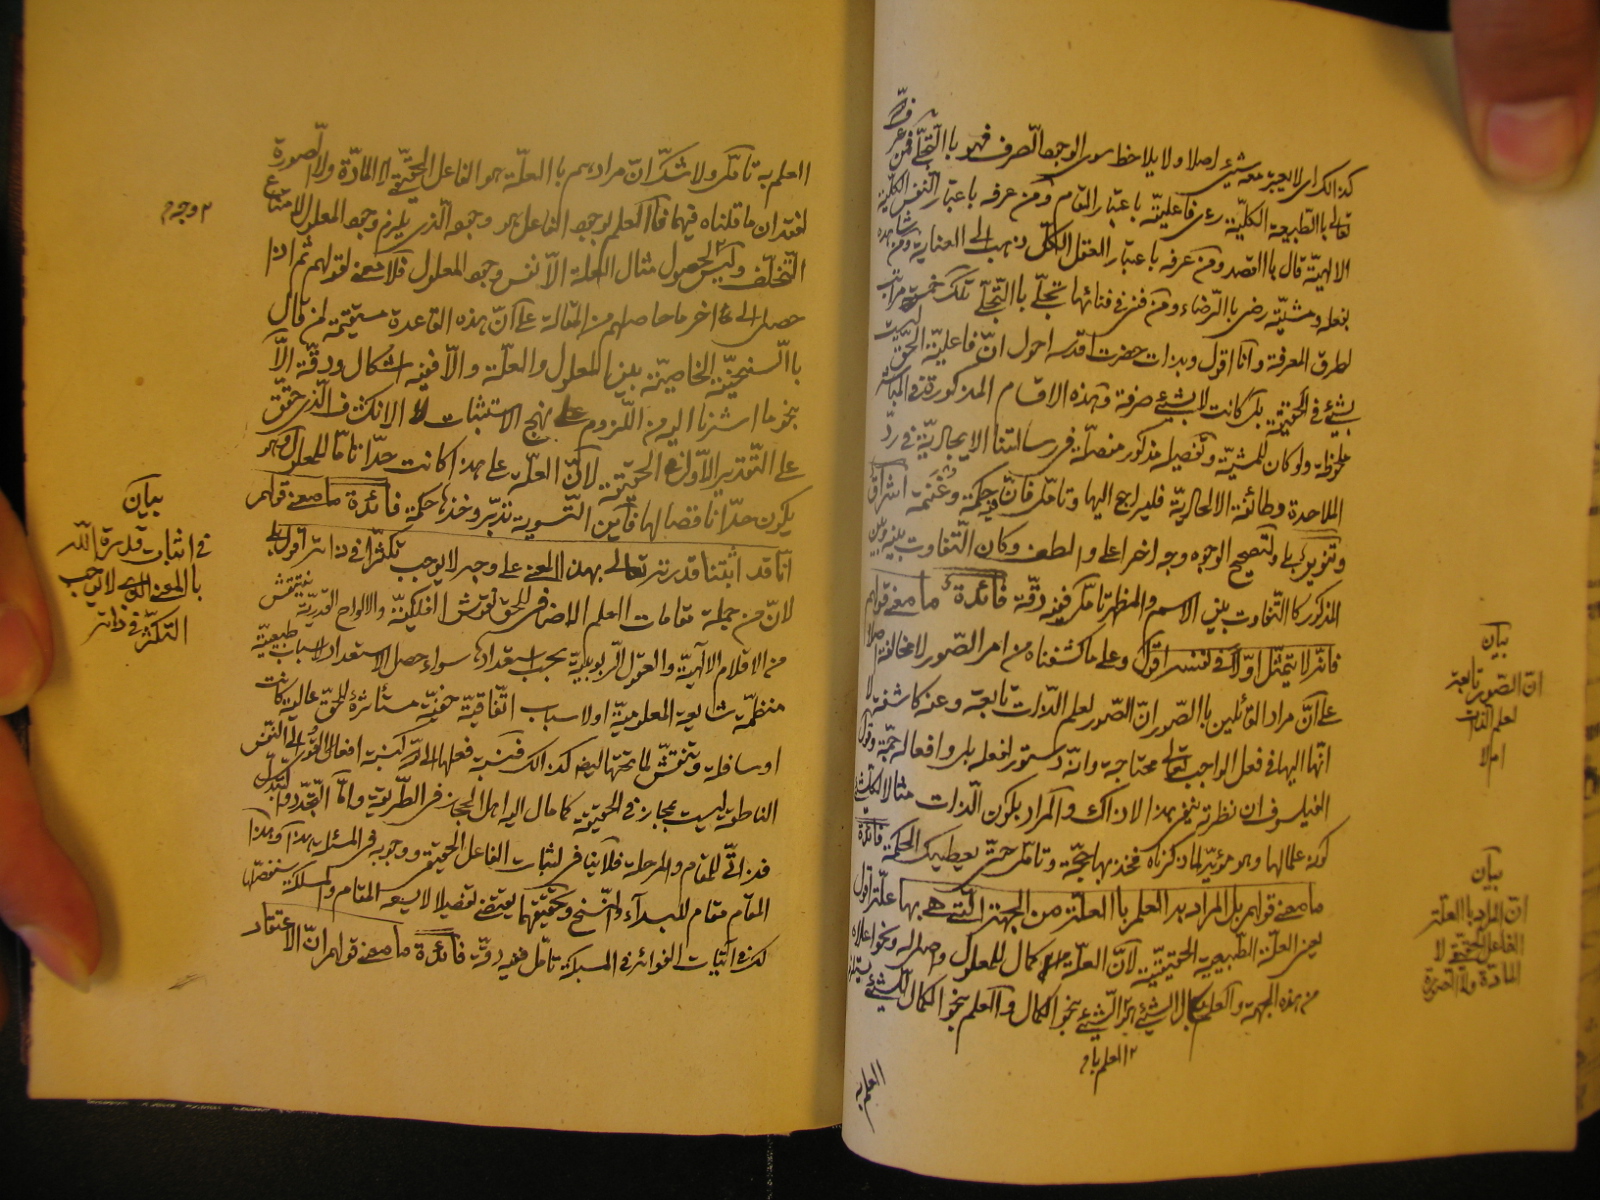 كذالك اى لا يعتبر معه شيئ اصلا ولا يلاحظ سوى الوجه الصرف فهو باالتجلّى فمن عرفه
تعالى باالطبيعة الكليّة رءى فاعليّته باعتبار القام ومن عرفه باعتبار النفس الكليّة
الالهيّة قال باالقصد ومن عرفه باعتبار العقل الكل ذهب الى العناية ومن شاهده
بفعله ومشيّته رضى باالرضاء ومن فنى في فنائها تجلّى باالتجلّى تلك خمس مراتب
لطرق المعرفة وانا اقول وبذات حضرت اقدسه احول انّ فاعليّة الحقّ ليست
بشيئ في الحقيقة بل كانت لا بشيئ صرفة وهذه الاقسام المذكورة في المباشر
ملحوظة ولو كان للمشيّة وتفصيله مذكور مفصلة في رسالتنا الايجاديّة في ردّ
الملاحدة وطائفة الالحاديّة فليراجع اليها وتامّل فانّه حكمة وغنمة اشراق
وتنوير بلى ولتصحيح الوجوه وجه اخر اعلى والطف وكان التفاوت بينه وبين
المذكور كا التفاوت بين الاسم والمظهر تامّل ففيه دقّة فائدة ما معنى قولهم
فانّه لا يتمثّل اوّلا في نفسه اقول وعلى ما كشفناه من امر الصّور لا مخالفة اصلا
على انّ مراد القائلين باالصّور انّ الصّور لعلم الذات تابعة وعنه كاشفة لا
انها اليها في فعل الواجب تعالى محتاجة وانّه دستور لفعله بل وافعاله جمّة وقول
الفيلسوف ان نظرته يتمّ بهذا الادراك والمراد بكون الذات مثالا لكلشيئ
كونه عالما لها وهو مؤيّد لما ذكرناه فخذ بها بجمّة وتامّل حتّى يعطيك الحكمة فائدة
ما معنى قولهم بل المراد به العلم باالعلّة من الجهة الّتى هى بها علّة اقول
يعنى العلّة الطبيعية الحقيقية لانّ العلّة كمال للمعلول واصل له ونحو اعلاه
من هذه الجهة والعلم بكمال الشيئ هو الشيئ بنحو الكمال والعلم بنحو الكمال لشيئ
٢ العلم بام
العلم به
بيان
انّ الصّور تابعة
لعلم الذات
ام لا
بيان
انّ المراد باالعلّة
الفاعل الحقيقى لا
المادّة ولا الصورة
العلم به تامّل ولا شكّ انّ مرادهم باالعلّة هو الفاعل الحقيقى لا المادّة ولا الصورة
افتقد ان ما قلناه فيهما فاالعلم بوجه الفاعل هو وجهه الّذى يلزم وجه المعلول لامتناع
التخلّف وليس الحصول مثال العلة الّا نفس وجه المعلول فلا معنى لقولهم ثم اذا
حصل الى اخر ما حاصلهم من المقالة على انّ هذه القاعدة مستقيمة لمن قال
باالسنخيّة الخاصيّة بين المعلول والعلّة والّا ففيه اشكال ودقّة الّا
بنحو ما اشرنا اليه من اللزوم على نهج الاستثبات لا الانكشاف الّذى حقّق
على التقدير الاوّل في الحقيقة لانّ العلّة على هذا كانت حدّا تامّا للمعلول وهو
يكون حدّا ناقصا لها فاين التسوية تدبّر وخذها حكمة فائدة ما معنى قولهم
انّا قد اثبتنا قدرته تعالى بهذا المعنى على وجه لا يوجب تكثّرا في ذاته اقول بلى
لانّ من جملة مقامات العلم الاضافى للحق نفوش الفلكيّة والالواح القدريّة ينتقش
من الاقلام الالهيّة والعقول الربوبيّة بحسب استعدادها سواء حصل الاستعداد لاسباب طبيعيّة
منظمّة شايعة المعلوميّة او لاسباب اتّفاقيّة خفيّة مستأثرة للحق عالية كانت
او سافلة وينتقش لما تحتها ايضا كذالك فنسبة فعلها اليه كنسبة افعال القوى الى النفس
الناطقة ليست بمجاز في الحقيقة كما مال اليه اهل المجاز في الطّريقة وامّا التجدّد والتبدّل
فذاتّى للمقام والمرحلة فلا ينافى لثبات الفاعل الحقيقى ووجوبه في المسئلة بهذا وهذا
المقام مقام للبداء والنسخ وتحقيقهما يقتضى تفصيلا لا يسعه المقام والمسلك سنفصّلها
لك في اثبات الفوائد في المسبكة تامّل ففيه دقّة فائدة ما معنى قولهم انّ الاعتقاد
٢ وجه م
بيان
في اثبات قدرة اللّه
باالمعنى الذى لا يوجب
التكثّر في ذاته